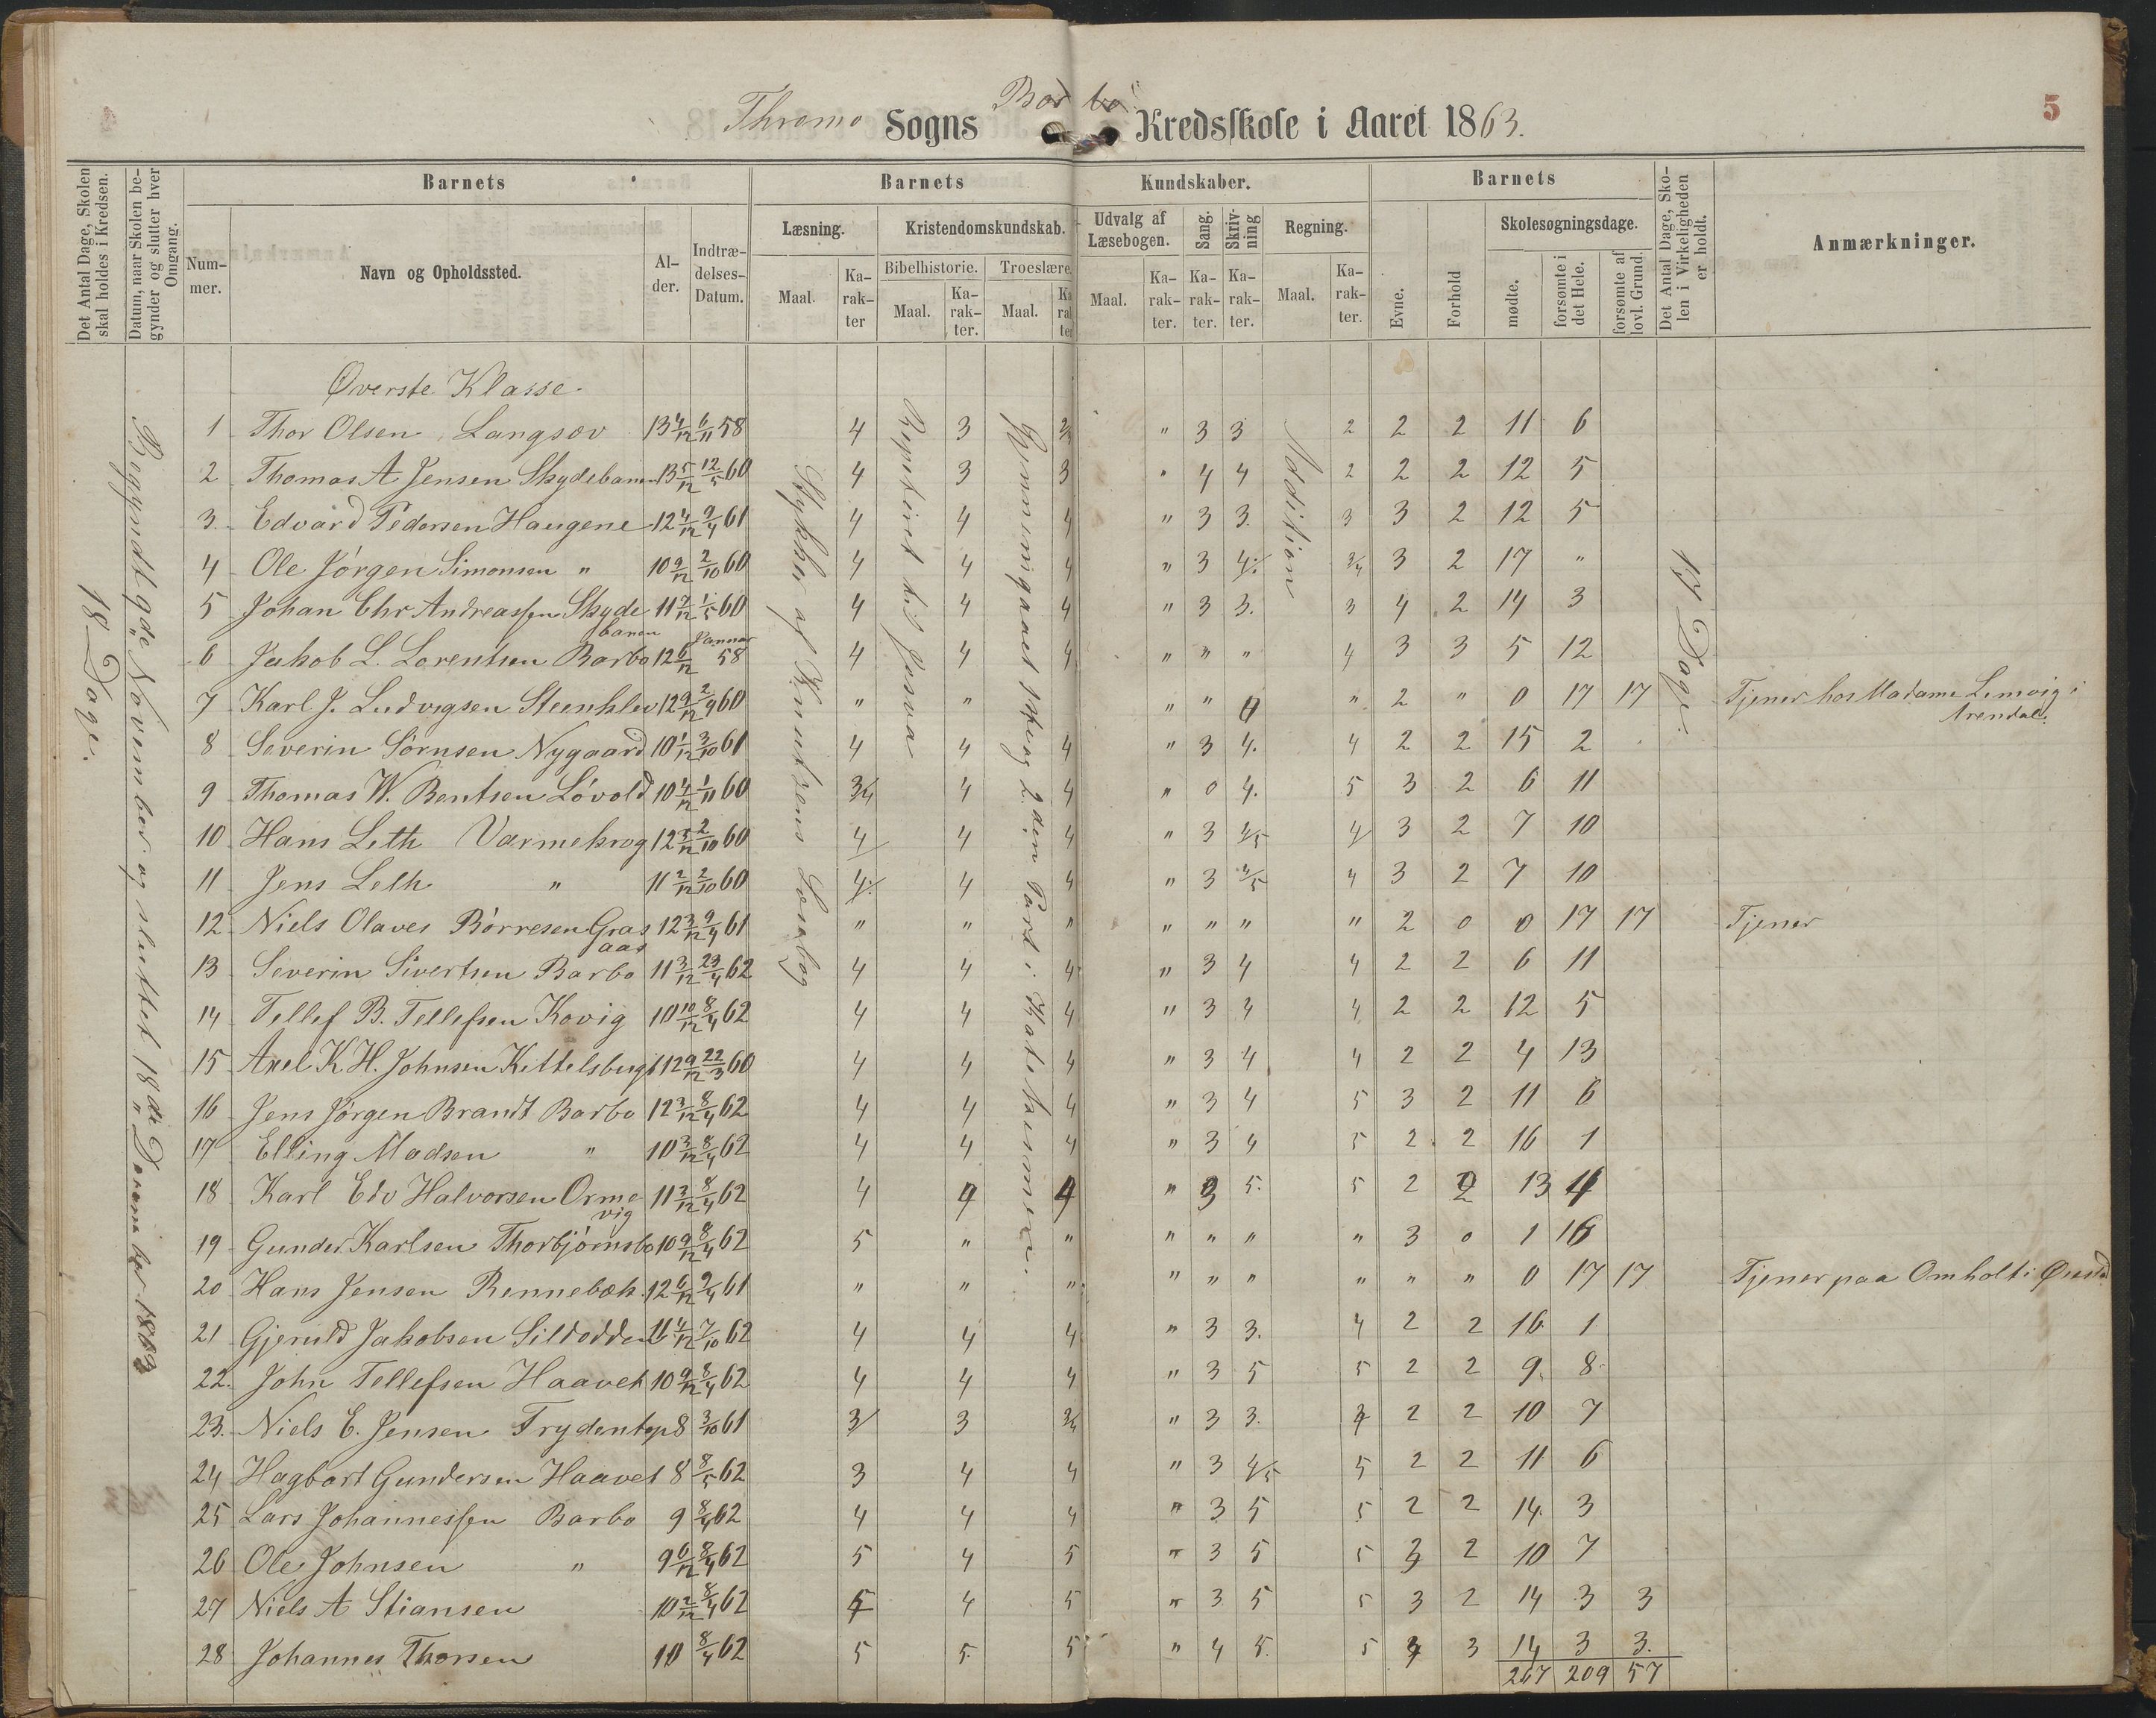 Thromø Sogns Barbo Kredsskole i Aaret 1863.
5
Det Antal Dage, Skolen skal holdes i Kredsen.
Datum, naar Skolen begynder og slutter hver Omgang.
Barnets
Barnets
Kundskaber.
Barnets
Det Antal Dage, Skolen i Virkeligheden er holdt.
Anmærkninger.
Nummer.
Navn og Opholdssted.
Alder.
Indtrædelses-Datum.
Læsning.
Kristendomskundskab.
Udvalg af Læsebogen.
Sang.
Skrivning
Regning.
Evne.
Forhold
Skolesøgningsdage.
Bibelhistorie.
Troeslære.
Maal.
Karakter
Maal.
Karakter.
Maal.
Karakter
Maal.
Karakter.
Karakter.
Karakter.
Maal.
Karakter.
mødte.
forsømte i det Hele.
forsømte af lovl. Grund.
18 Dage.
Begyndt 9de November og sluttet 18de December 1863
Stykker af Knudsens Læsebog
Repeteret til Josva
Gjennemgaaet 1ste og 2den Part i Katekismen.
Addition
17 Dage.
Øverste Klasse.
1 Thor Olsen, Langsov 13 4/12 6/11 58 4 3 2/3 " 3 3 2 2 2 11 6
2 Thomas A Jensen Skydebanen 13 5/12 12/5 60 4 3 3 " 4 4 2 2 2 12 5
3. Edvard Pedersen Haugene 12 4/12 9/4 61 4 4 4 " 3 3. 3 3 2 12 5
4 Ole Jörgen Simonsen " 10 9/12 2/10 60 4 4 4 " 3 4. 3/4 3 2 17 "
5 Johan Chr Andreassen Skydebanen 11 7/12 1/5 60 4 4 4 " 3 3. 3 4 2 14 3
6 Jakob L. Lorentsen Barbo 12 6/12 Januar 58 4 4 4 " " " 4 3 3 5 12
7 Karl J. Ludvigsen Steenklev 12 9/12 2/9 60 " " " " 0 " 2 " 0 17 17 Tjener hos Madame Lemvig i Arendal.
8 Severin Sörnsen Nygaard 10 1/12 3/10 61 4 4 4 " 3 4. 4 2 2 15 2
9 Thomas W. Bentsen Lövold 10 4/12 1/11 60 3/4 4 4 " 0 4. 5 3 2 6 11
10 Hans Leth Varmekrog 12 3/12 2/10 60 4 4 4 " 3 4/5 4 3 2 7 10
11 Jens Leth " 11 2/12 2/10 60 4. 4 4 " 3 4/5 4 3 2 7 10
12 Niels Olaves Börresen Grasaas 12 3/12 9/4 61 " " " " " " " 2 0 0 17 17 Tjener
13 Severin Sivertsen Barbo 11 3/12 23/4 62 4 4 4 " 3 4 4 2 2 6 11
14 Tellef B. Tellefsen Kovig 10 10/12 8/4 62 4 4 4 " 3 4 4 2 2 12 5
15 Axel K H. Johnsen Kittelsbugt 12 9/12 22/3 60 4 4 4 " 3 4 4 2 2 4 13
16 Jens Jörgen Brandt Barbo 12 3/12 8/4 62 4 4 4 " 3 4 5 3 2 11 6
17 Elling Madsen " 10 3/12 8/4 62 4 4 4 " 3 4 5 2 2 16 1
18 Karl Edv Halvorsen Ormevig 11 3/12 8/4 62 4 4 4 " 3 5. 5 2 2 13 4
19 Gunder Karlsen Thorbjörnsbo 10 9/12 8/4 62 5 " " " " " " 3 0 1 16
20 Hans Jensen Rennebæk 12 6/12 9/4 61 " " " " " " " " " 0 17 17 Tjener paa Omholt i Øiestad
21 Gjeruld Jakobsen Sildodden 11 4/12 7/10 62 4 4 4 " 3 3. 4 2 2 16 1
22. John Tellefsen Haavet 10 9/12 8/4 62 4 4 4 " 3 5 5 2 2 9. 8
23. Niels E. Jensen Frydentop 8 3/10 61 3 3 3/4 " 3 3. 2 2 10 7
24 Hagbart Gundersen Haavet 8 8/5 62 3 4 4 " 3 4/5 5 2 2 11 6
25 Lars Johannessen Barbo 9 8/4 62 4 4 4 " 3 5 5 2 2 14. 3
26 Ole Johnsen " 9 6/12 8/4 62 5 4 5 " 3 5 5 3 2 10 7
27 Niels A Stiansen 10 2/12 8/4 62 5 4 5 " 3 5 5 3 2 14 3 3
28 Johannes Thorsen 10 8/4 62 5 5. 5 " 4 5. 5 3 14 3 3.
267 209 57